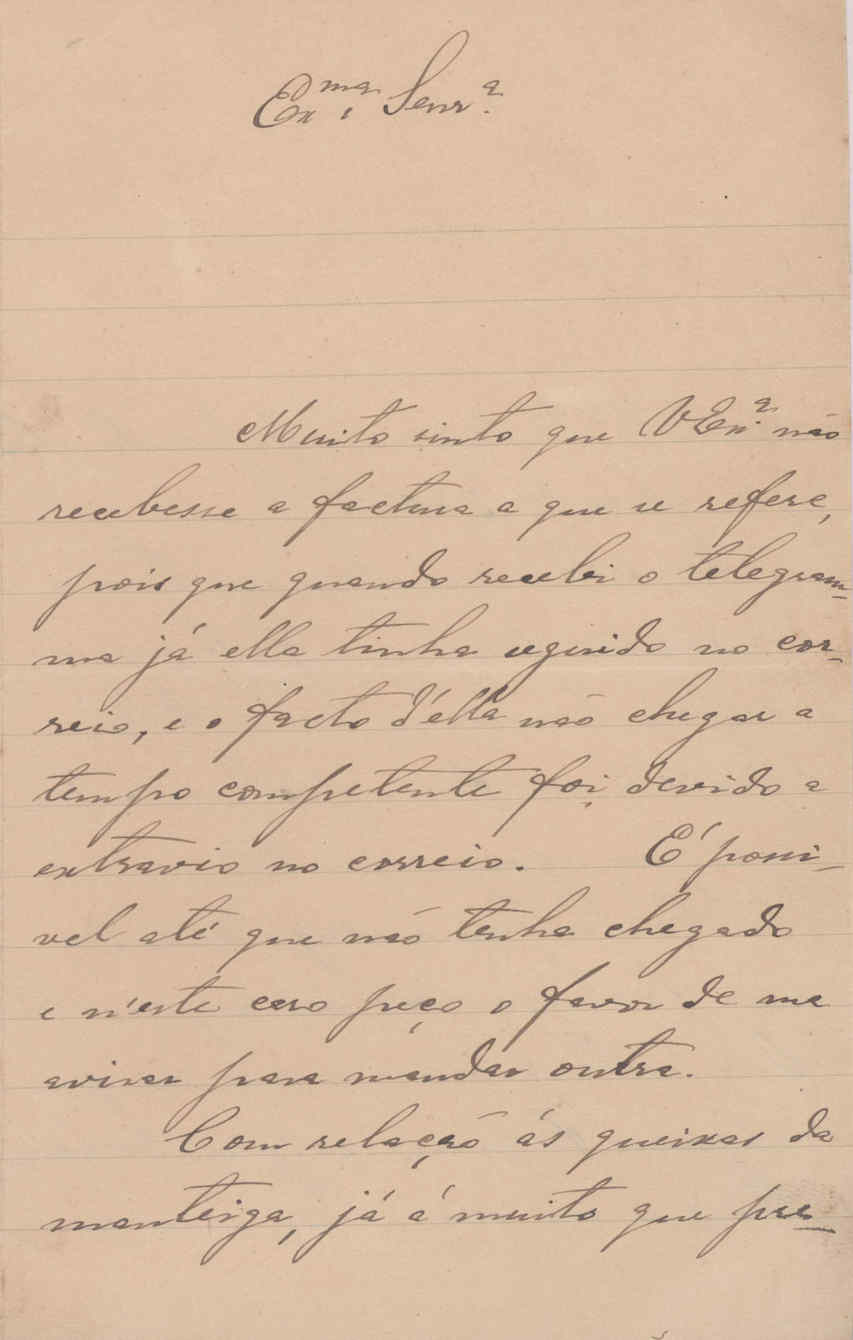 Ex.ma Senr.a
Muito sinto que V Ex.a não
recebesse a factura a que se refere,
pois que quando recebi o telegram-
ma já ella tinha seguido no cor-
reio, e o facto d'ella não chegar a
tempo competente foi devido a
extravio no correio. É possi-
vel até que não tenha chegado
e n'este caso peço o favor de me
avisar para mandar outra.
Com relação ás queixas da
manteiga, já á muito que pre-